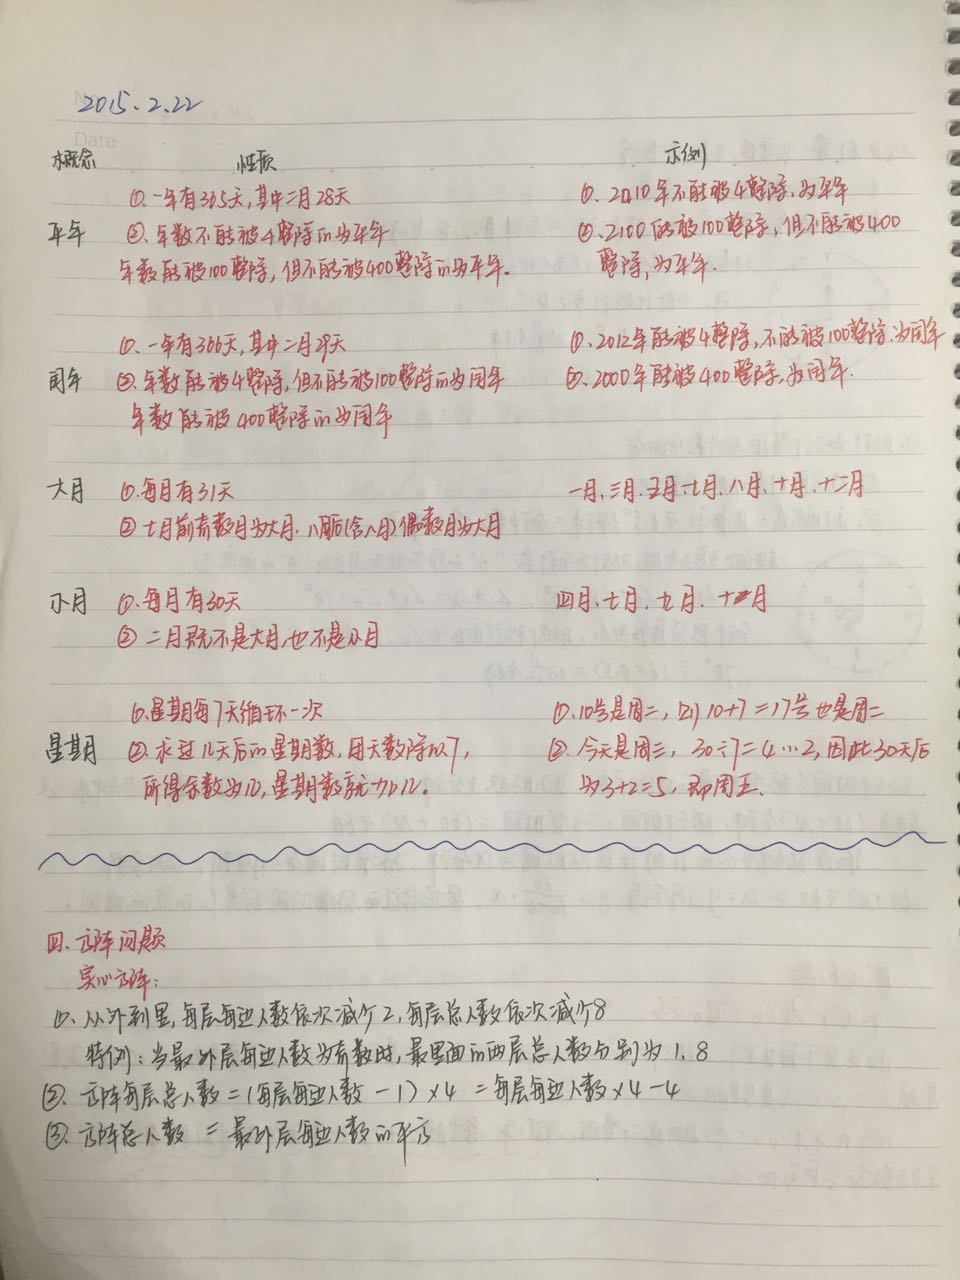 2015.2.22
Date
概念 性质 示例
①.一年有365天,其中二月28天 ①.2010年不能被4整除,为平年
平年 ②.年数不能被4整除的为平年 ②.2100能被100整除,但不能被400
年数能被100整除,但不能被400整除的为平年. 整除,为平年.
①.一年有366天,其中二月29天 ①.2012年能被4整除,不能被100整除.为闰年
闰年 ②.年数能被4整除,但不能被100整除的为闰年 ②.2000年能被400整除,为闰年.
年数能被400整除的为闰年
大月 ①.每月有31天 一月、三月、五月、七月、八月、十月、十二月
② 七月前奇数月为大月.八月后(含八月)偶数月为大月
小月 ①.每月有30天 四月、七月、九月、十一月
② 二月既不是大月,也不是小月
①.星期每7天循环一次 ①.10号是周二,则10+7=17号也是周二
星期 ②.求过几天后的星期数,用天数除以7, ②.今天是周三,30÷7=4…2,因此30天后
所得余数为几,星期数就加几。 为3+2=5,即周五、
四.方阵问题
实心方阵:
①.从外到里,每层每边人数依次减少2,每层总人数依次减少8
特例:当最外层每边人数为奇数时,最里面的两层总人数分别为1、8
②.方阵每层总人数=(每层每边人数-1)×4=每层每边人数×4-4
③.方阵总人数=最外层每边人数的平方